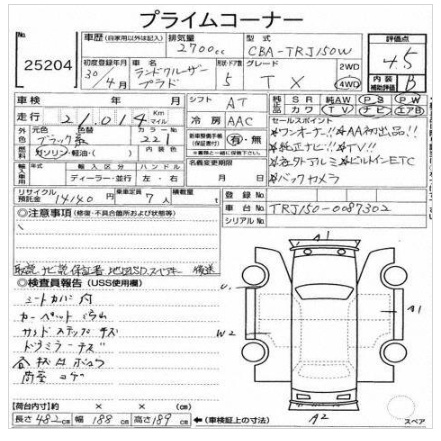 プライムコーナー
No 25204
車歴 (自家用以外は記入) 排気量 2700cc 型式 CBA-TRJ150W 評価点 4.5
初度登録年月 30/4月 車名 ランドクルーザー プラド 形状・ドア数 5 グレード TX 2WD 4WD 内装補助評価 B
車検 年 月 シフト AT 純正 SR 純AW PS PW
走行 21,014 Km マイル 冷房 AAC 革 カワ TV ナビ エアB
外色 元色 ブラック 色替 カラーNo 221 内装色
新車整備手帳(保証書付) 有・無
セールスポイント
*ワンオーナー!! *AA初出品!!
*純正ナビ!! *TV!!
*ビルトインETC
*バックカメラ
燃料 ガソリン・軽油・( )
名義変更期限 月 日
輸入車 年式 輸入区分 ディーラー・並行 ハンドル 左・右
リサイクル預託金 14140円 乗車定員 7人 積載量 t
登録No
車台No TRJ150-0087302
シリアルNo
◎注意事項 (修復・不具合箇所および状態等)
取説 ナビ説 保証書 地デジ SD スペアキー 後送
◎検査員報告 (USS使用欄)
シートカバー付
カーペット 汚れ
サイドステップ キズ
ドアミラーキズ
荷室 コゲ
A1
U
W2
A1
A2
【荷台内寸】約 × × (cm)
長さ 482cm 幅 188cm 高さ 189cm ←(車検証上の寸法)
スペア